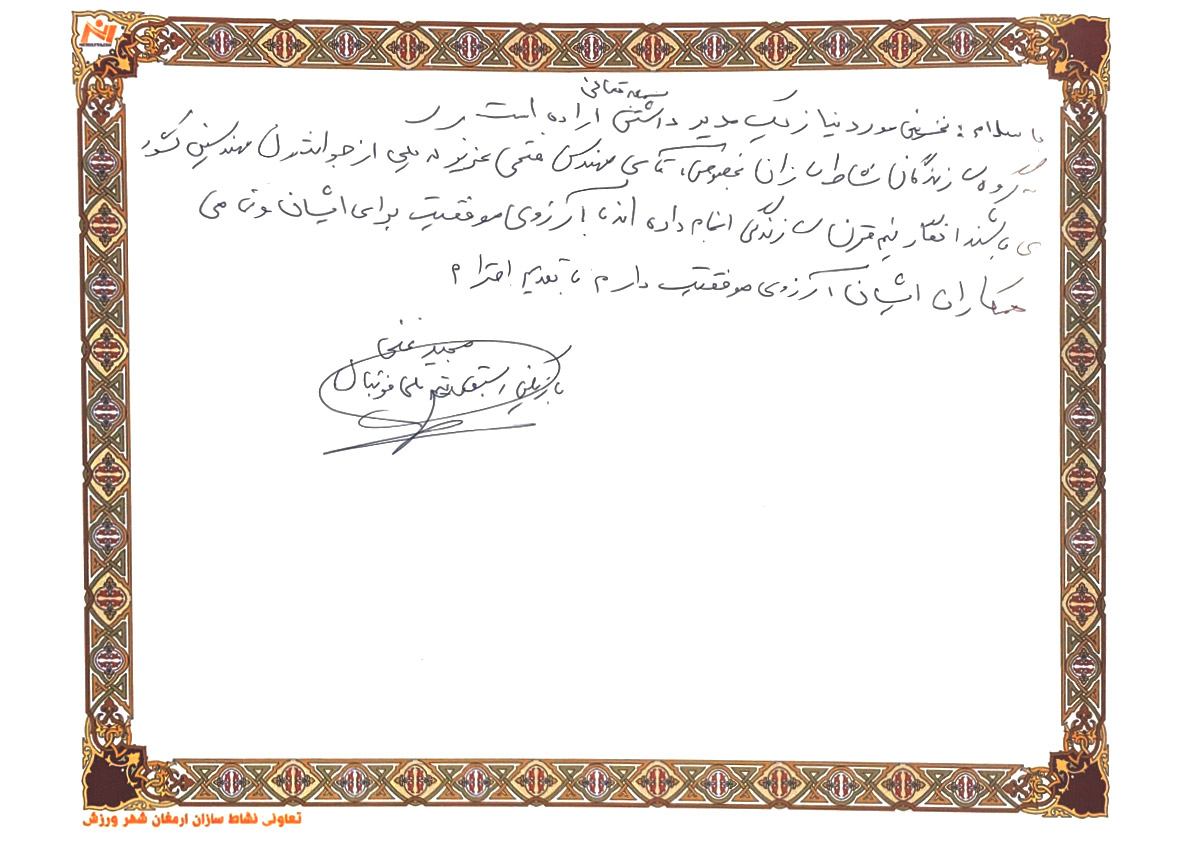 بسمه تعالی
با سلام: نخستین مورد نیاز یک مدیر داشتن اراده است
به گروه سازندگان نشاط سازان بخصوص آقای مهندس عزیز که یکی از مهندسین کشور
می باشند افکار نیم قرن سازندگی انجام داده اند با آرزوی موفقیت برای ایشان و تمامی
همکاران ایشان آرزوی موفقیت دارم با تقدیم احترام
مجید
بازیکن استقلال تیم ملی فوتبال
تعاونی نشاط سازان ارمغان شهر ورزش